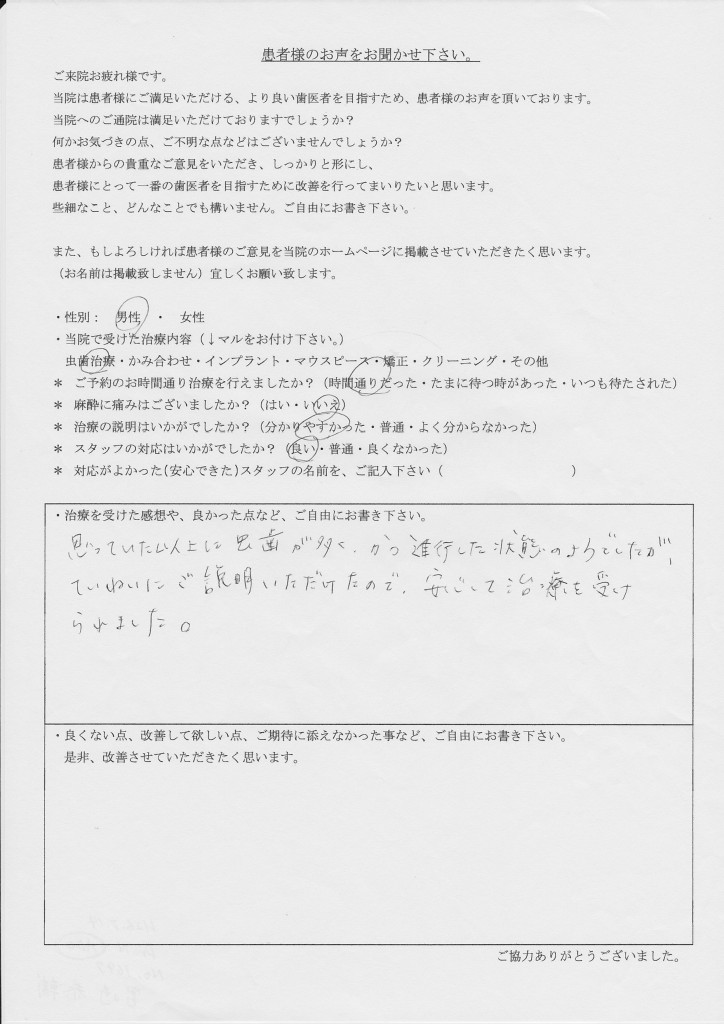 患者様のお声をお聞かせ下さい。
ご来院お疲れ様です。
当院は患者様にご満足いただける、より良い歯医者を目指すため、患者様のお声を頂いております。
当院へのご通院は満足いただけておりますでしょうか？
何かお気づきの点、ご不明な点などはございませんでしょうか？
患者様からの貴重なご意見をいただき、しっかりと形にし、
患者様にとって一番の歯医者を目指すために改善を行ってまいりたいと思います。
些細なこと、どんなことでも構いません。ご自由にお書き下さい。
また、もしよろしければ患者様のご意見を当院のホームページに掲載させていただきたく思います。
（お名前は掲載致しません）宜しくお願い致します。
・性別： 男性 ・ 女性
・当院で受けた治療内容（↓マルをお付け下さい。）
虫歯治療・かみ合わせ・インプラント・マウスピース・矯正・クリーニング・その他
＊ ご予約のお時間通り治療を行えましたか？（時間通りだった・たまに待つ時があった・いつも待たされた）
＊ 麻酔に痛みはございましたか？（はい・いいえ）
＊ 治療の説明はいかがでしたか？（分かりやすかった・普通・よく分からなかった）
＊ スタッフの対応はいかがでしたか？（良い・普通・良くなかった）
＊ 対応がよかった（安心できた）スタッフの名前を、ご記入下さい（ ）
・治療を受けた感想や、良かった点など、ご自由にお書き下さい。
思っていた以上に虫歯が多く、かつ進行した状態のようでしたが、
ていねいにご説明いただけたので、安心して治療を受け
られました。
・良くない点、改善して欲しい点、ご期待に添えなかった事など、ご自由にお書き下さい。
是非、改善させていただきたく思います。
ご協力ありがとうございました。